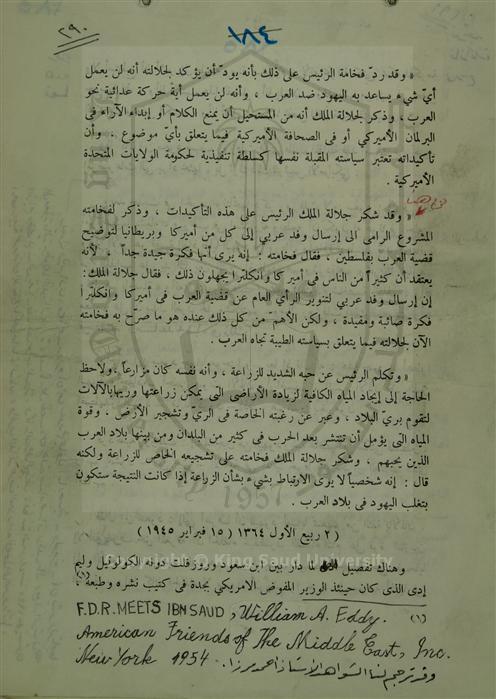 ٢٩٠
١٨٤
« وقد ردّ فخامة الرئيس على ذلك بأنه يودّ أن يؤكد لجلالته أنه لن يعمل
أيّ شيء يساعد به اليهود ضد العرب ، وأنه لن يعمل أية حركة عدائية نحو
العرب ، وذكر لجلالة الملك أنه من المستحيل أن يمنع الكلام أو إبداء الآراء فى
البرلمان الأميركي أو فى الصحافة الأميركية فيما يتعلق بأيّ موضوع . وأن
تأكيداته تعتبر سياسته المقبلة نفسها كسلطة تنفيذية لحكومة الولايات المتحدة
الأميركية .
« وقد شكر جلالة الملك الرئيس على هذه التأكيدات ، وذكر لفخامته
المشروع الرامى الى إرسال وفد عربي إلى كل من أميركا وبريطانيا لتوضيح
قضية العرب بفلسطين ، فقال فخامته : إنه يرى أنها فكرة جيدة جداً ، لأنه
يعتقد أن كثيراً من الناس فى أميركا وانكلترا يجهلون ذلك ، فقال جلالة الملك :
إن إرسال وفد عربي لتنوير الرأي العام عن قضية العرب فى أميركا وانكلترا
فكرة صائبة ومفيدة ، ولكن الأهمّ من كل ذلك عنده هو ما صرّح به فخامته
الآن لجلالته فيما يتعلق بسياسته الطيبة تجاه العرب .
« وتكلم الرئيس عن حبه الشديد للزراعة ، وأنه نفسه كان مزارعاً ، ولاحظ
الحاجة إلى إيجاد المياه الكافية لزيادة الأراضى التى يمكن زراعتها وريها بالآلات
لتقوم بريّ البلاد ، وعبر عن رغبته الخاصة فى الريّ وتشجير الأرض ، وقوة
المياه التى يؤمل أن تنتشر بعد الحرب فى كثير من البلدان ومن بينها بلاد العرب
الذين يحبهم ، وشكر جلالة الملك فخامته على تشجيعه الخاص للزراعة ولكنه
قال : إنه شخصياً لا يرى الارتباط بشيء بشأن الزراعة إذا كانت النتيجة ستكون
بتغلب اليهود فى بلاد العرب .
1957
( ٢ ربيع الأول ١٣٦٤ ( ١٥ فبراير ١٩٤٥ )
Copyright © King Saud University
وهناك تفصيل لما دار بين ابن سعود وروزفلت دونه الكولونيل وليم
إدى الذى كان حينئذ الوزير المفوض الامريكي بجدة فى كتيب نشره وطبعه (١)
(١) F.D.R. MEETS IBN SAUD, William A. Eddy.
American Friends of The Middle East, Inc.
New York 1954 .
وقد ترجم لنا الشواهد الأستاذ احمد مرزا .